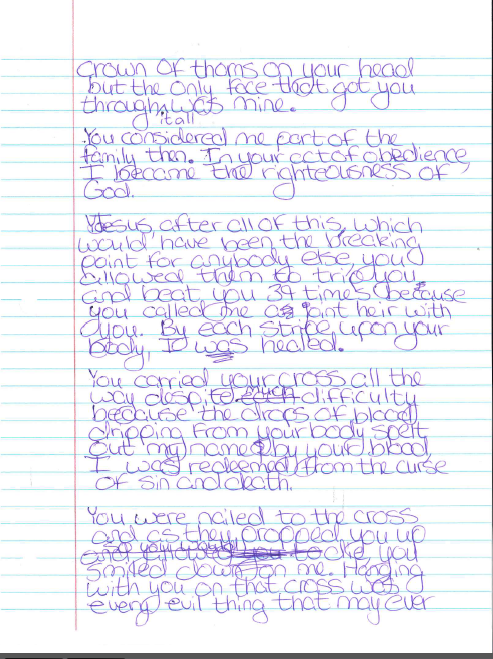 Crown of thorns on your head
but the only face that got you
through it all was mine.
You considered me part of the
family then. In your act of obedience,
I became the righteousness of
God.
Jesus, after all of this, which
would have been the breaking
point for anybody else, you
allowed them to you
and beat you 39 times because
you called me a joint heir with
you. By each stripe, upon your
body, I was healed.
You carried your cross all the
way despite such difficulty
because the drops of blood
dripping from your body spelt
out my name by your blood,
I was redeemed from the curse
of sin and death.
You were nailed to the cross
and as they propped you up
to die, you
smiled down on me. Hanging
with you on that cross was
every evil thing that may ever